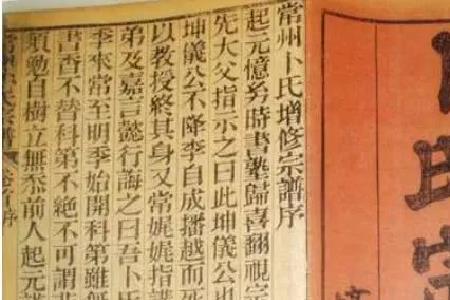 常州卜氏增修宗譜序
起元憶幼時書塾歸喜翻視宗
先大父指示之曰此坤儀公也
坤儀公不降李自成播越而死
以教授終其身又常娓娓指
弟及嘉言懿行誨之曰吾卜氏
季來常至明季始開科第雖無
書香不替科第不絕不可謂
須勤自樹立無忝前人起元
卜氏宗